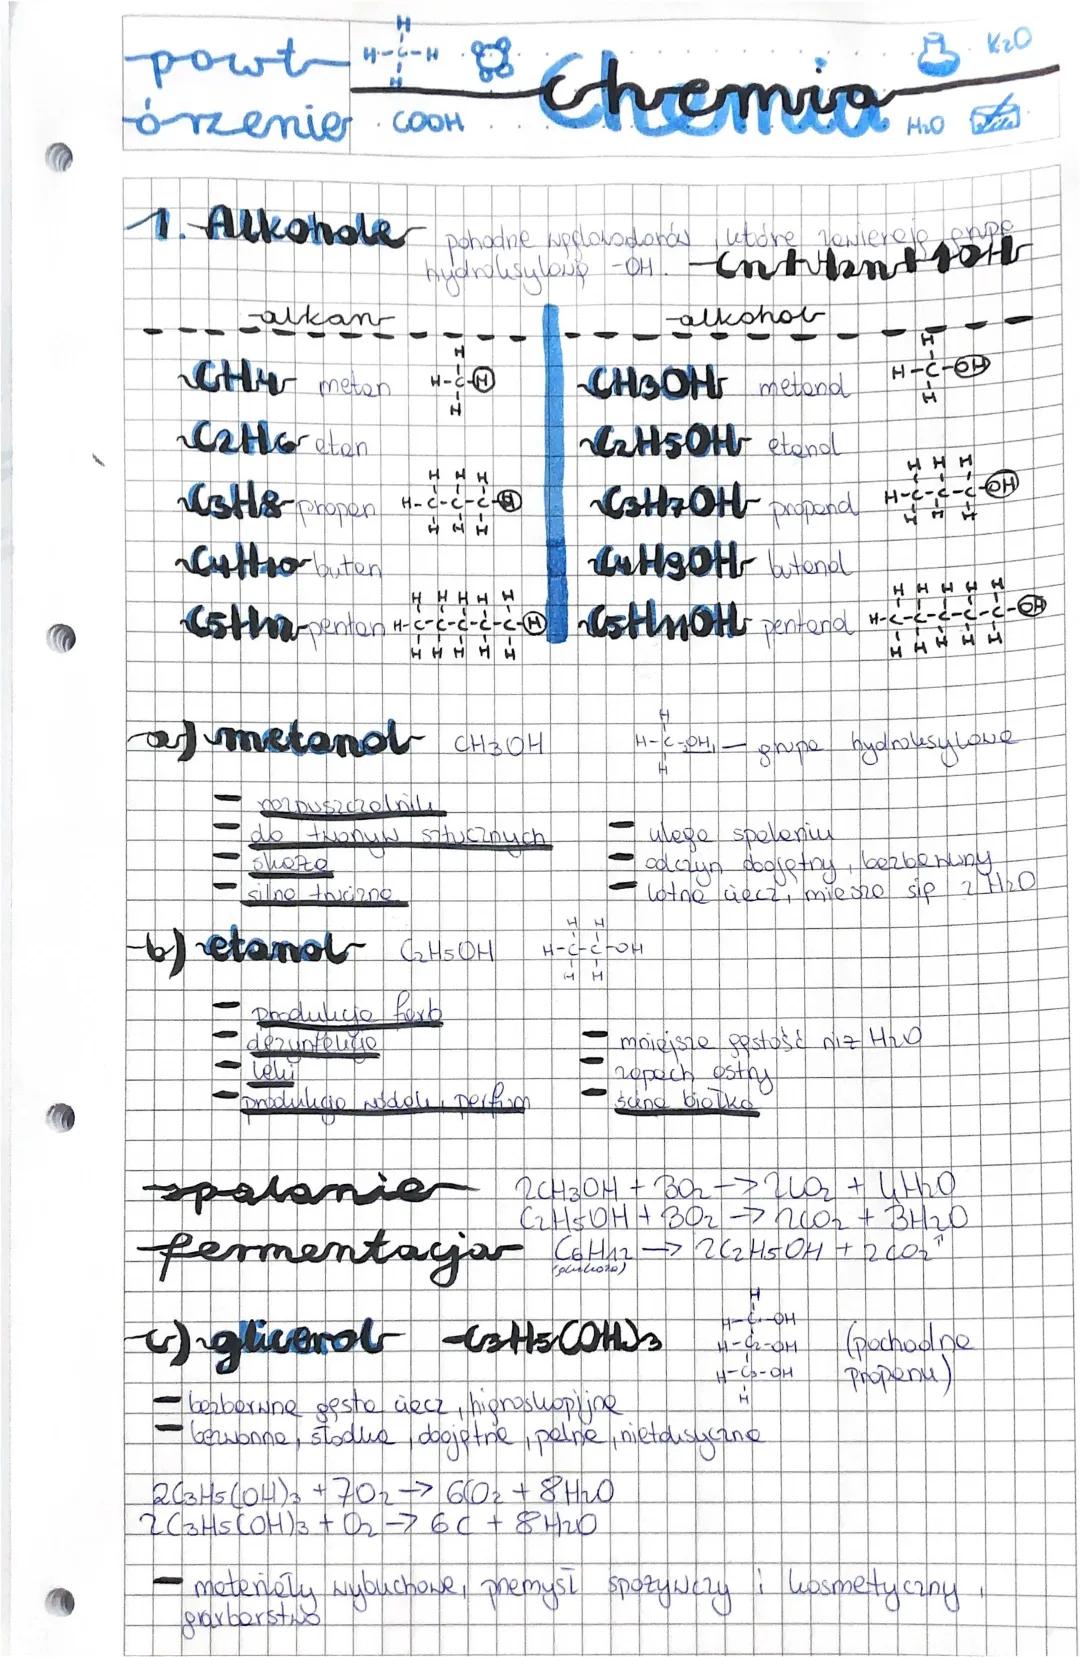 powt
órzenie
COOH
Chemia
K2O
H2O
1. Alkohole pohodne węglowodorów, które zawierają grupę
hydroksylową -OH. CnH2n+1OH
alkan alkohol
CH4 metan CH3OH metanol
C2H6 etan C2H5OH etanol
C3H8 propan C3H7OH propanol
C4H10 butan C4H9OH butanol
C5H12 pentan C5H11OH pentanol
a) metanol CH3OH
H-C-OH - grupa hydroksylowa
rozpuszczalnik
do tworzyw sztucznych
skaża
silne trucizne
ulega spalaniu
odczyn obojętny, bezbarwny
lotna ciecz, miesza się z H2O
b) etanol C2H5OH H-C-C-OH
produkcja farb
dezynfekcja
leki
produkcja wódek, perfum
mniejsza gęstość niż H2O
zapach ostry
ścina białka
spalanie 2CH3OH + 3O2 → 2CO2 + 4H2O
C2H5OH + 3O2 → 2CO2 + 3H2O
fermentacja C6H12 → 2C2H5OH + 2CO2↑
(glukoza)
c) glicerol C3H5(OH)3
H-C-OH
H-C-OH
H-C-OH
(pochodne
propanu)
bezbarwna gęsta ciecz, higroskopijna
bezwonna, słodka, obojętna, palna, nietoksyczna
2C3H5(OH)3 + 7O2 → 6CO2 + 8H2O
2C3H5(OH)3 + O2 → 6C + 8H2O
materiały wybuchowe, przemysł spożywczy i kosmetyczny,
garbarstwo